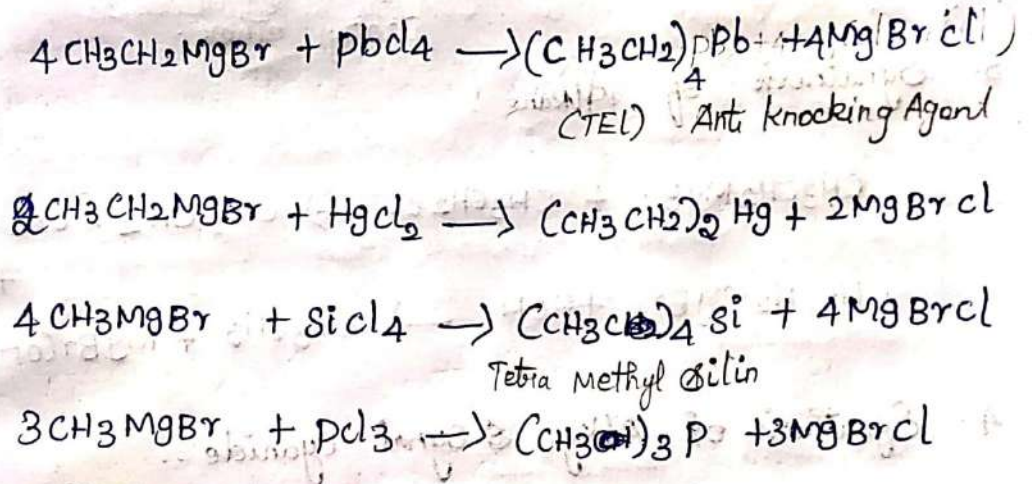 4CH3CH2MgBr + pbcl4 → (CH3CH2)4 Pb + 4MgBrcl
(TEL) Anti knocking Agent
2CH3CH2MgBr + Hgcl2 → (CH3CH2)2 Hg + 2MgBrcl
4CH3MgBr + Sicl4 → (CH3)4 Si + 4MgBrcl
Tetra Methyl Silin
3CH3MgBr + pcl3 → (CH3)3 P + 3MgBrcl